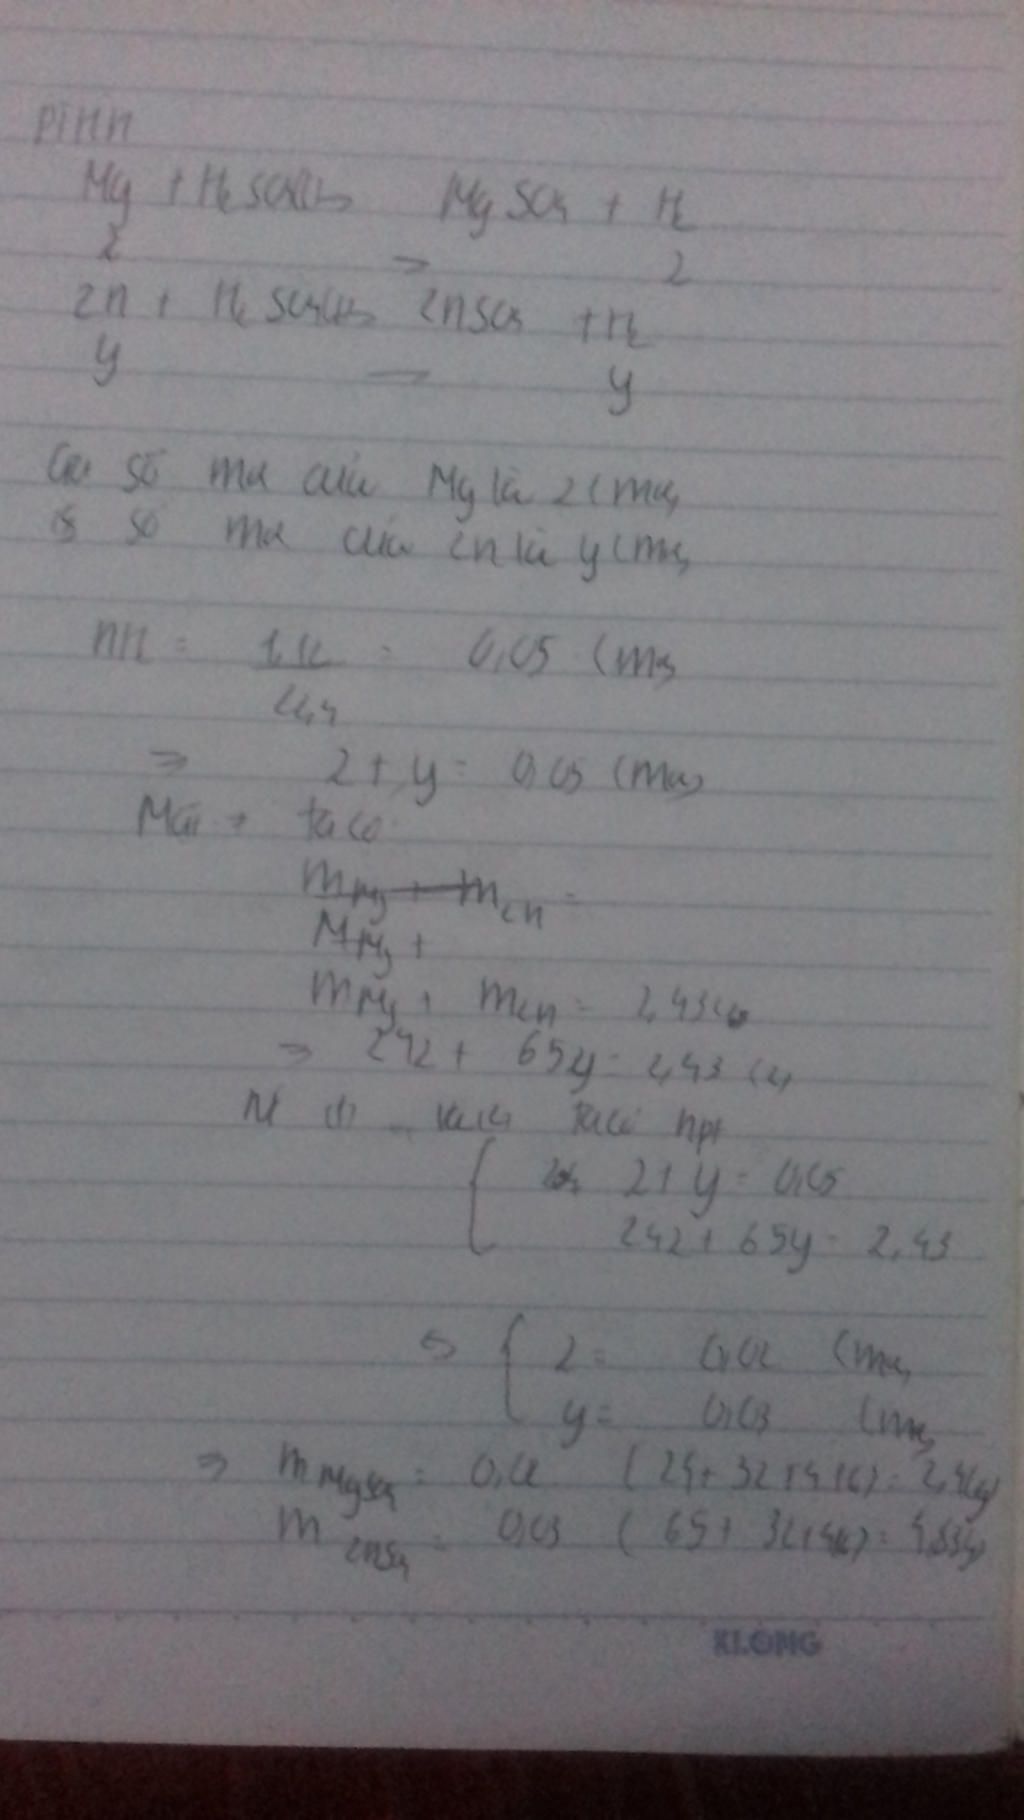 PTHH
Mg + H2SO4(l) MgSO4 + H2
x → x
Zn + H2SO4(l) ZnSO4 + H2
y — y
Gọi số mol của Mg là x (mol)
số mol của Zn là y (mol)
nH2 = 1,12 / 22,4 = 0,05 (mol)
⇒ x + y = 0,05 (mol)
Mặt ≠ ta có
mMg + mZn =
MMg +
mMg + mZn = 2,43 (g)
⇒ 24x + 65y = 2,43 (2)
Từ (1) ta có hpt
x + y = 0,05
24x + 65y = 2,43
⇔ x = 0,02 (mol)
y = 0,03 (mol)
⇒ mMgSO4 = 0,02 (24 + 32 + 4.16) = 2,4(g)
mZnSO4 = 0,03 (65 + 32 + 4.16) = 4,83g
KLONG